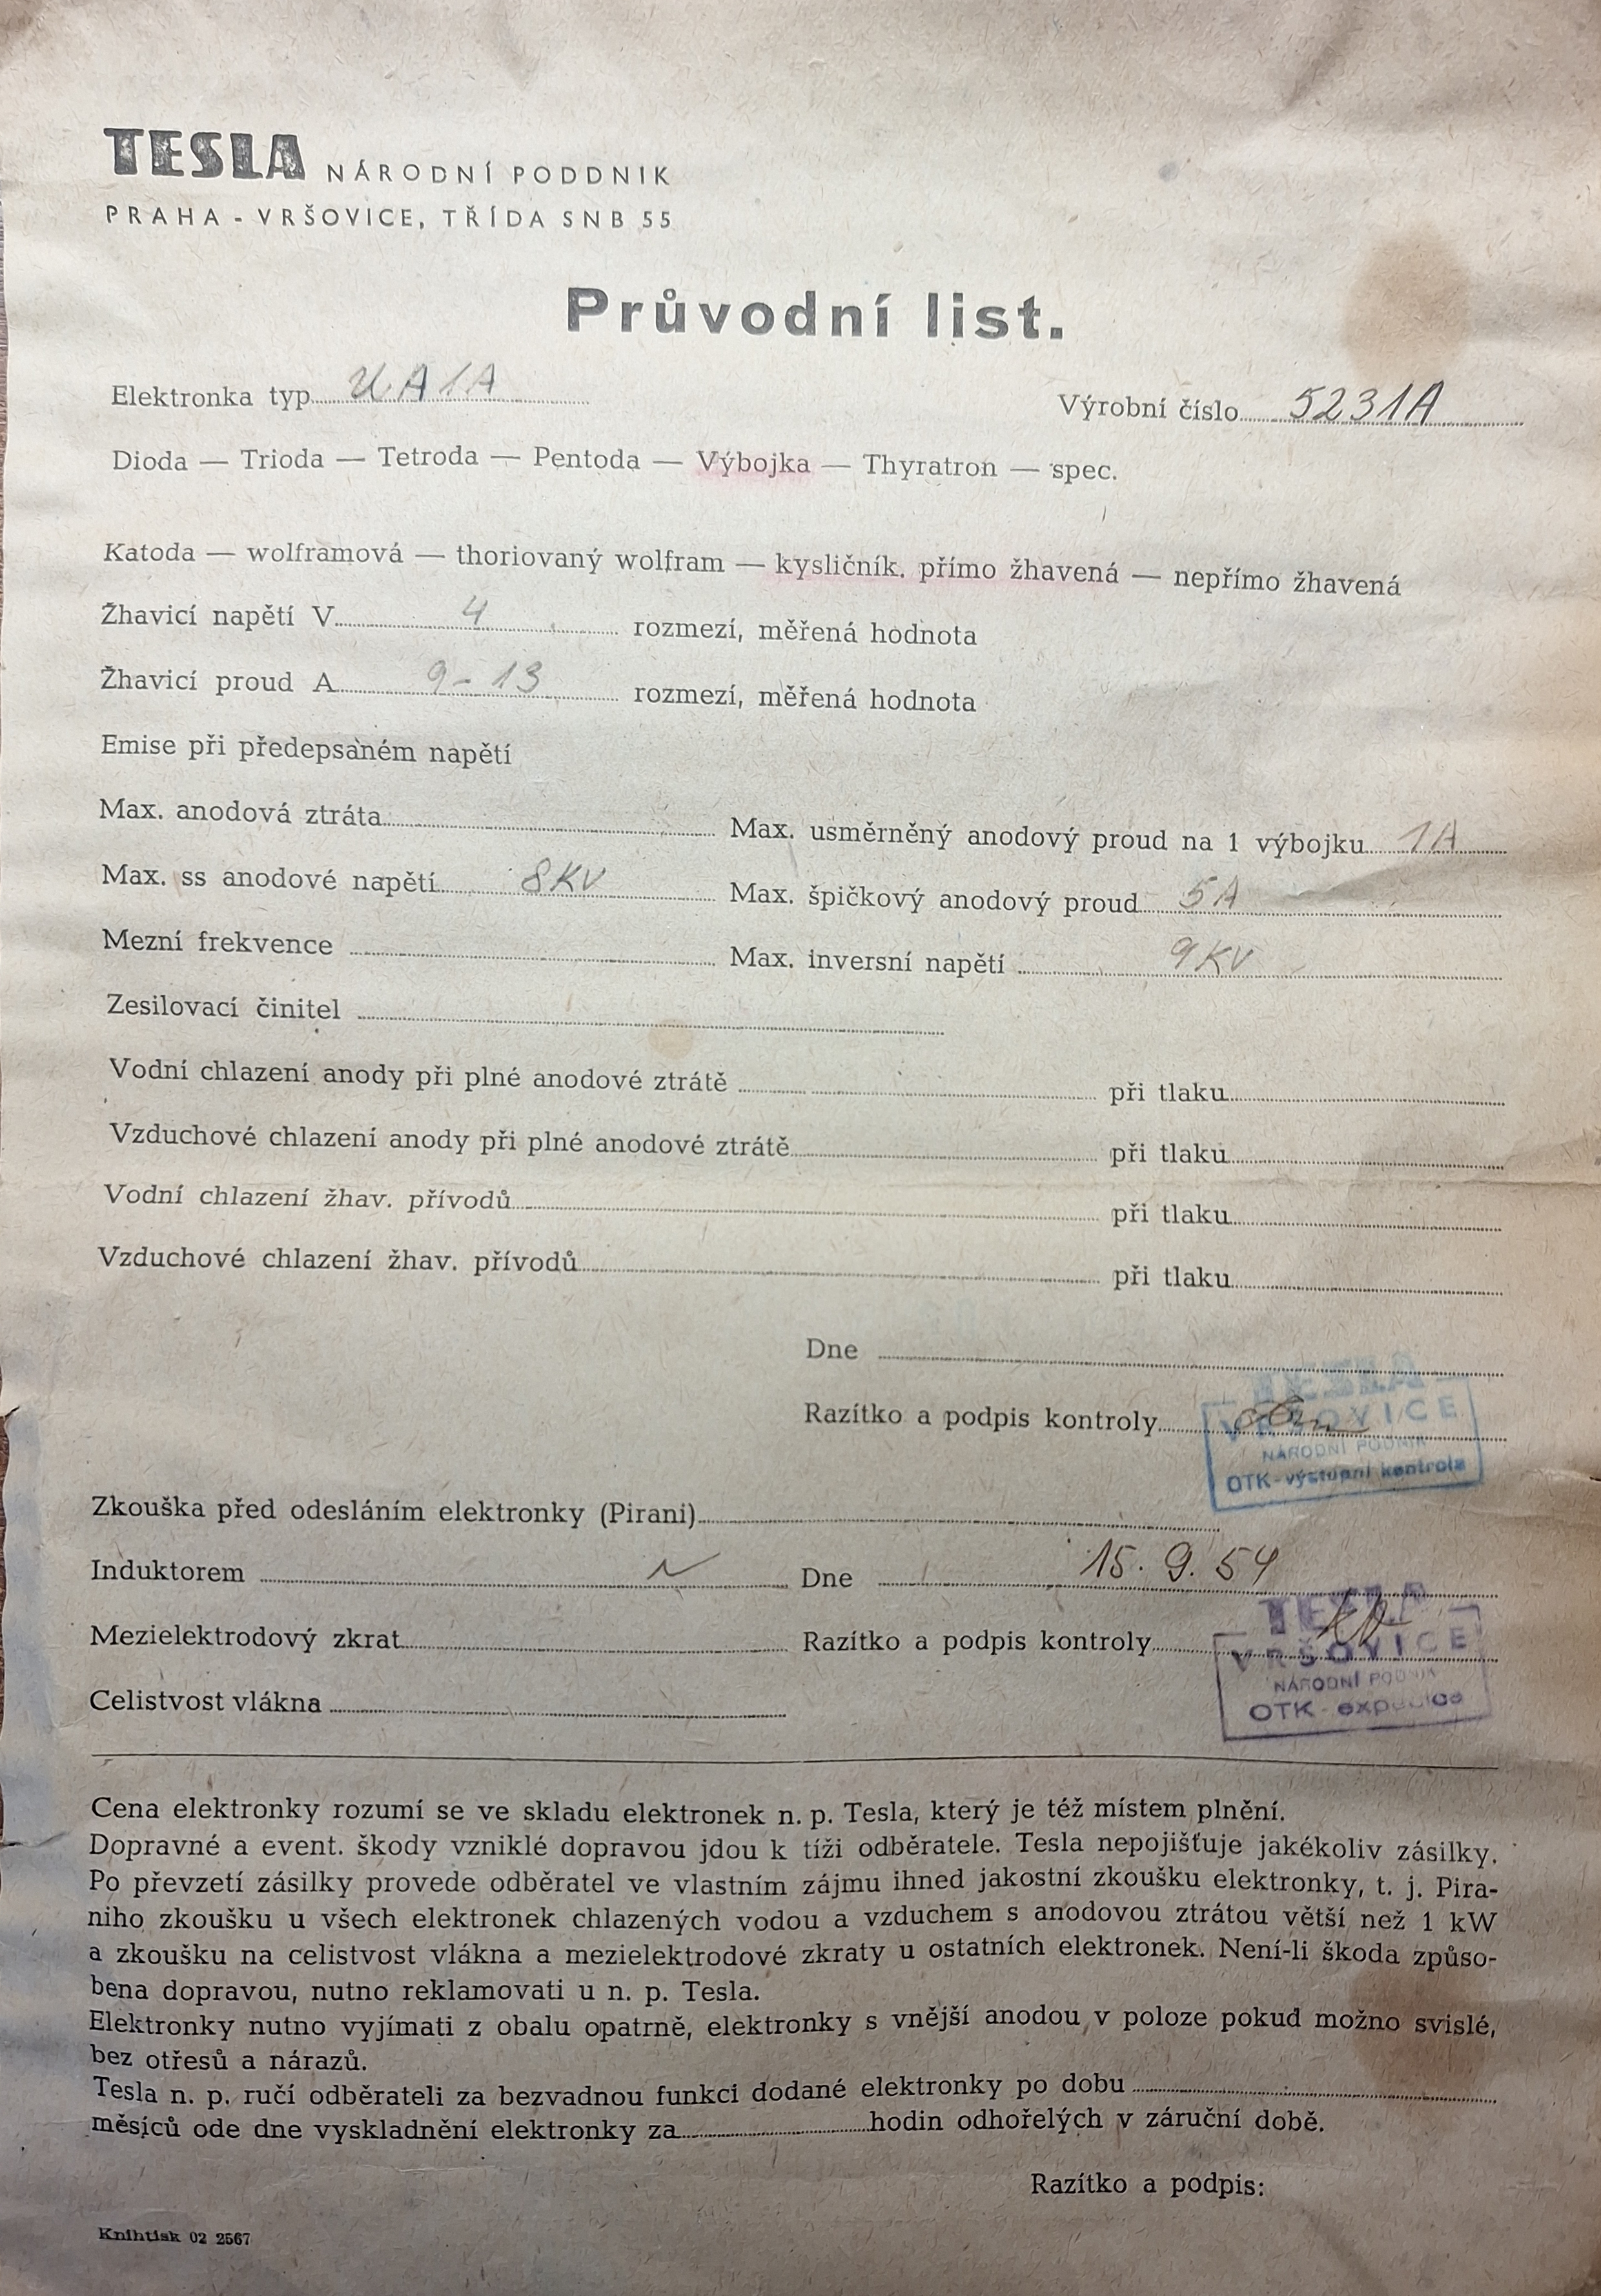 TESLA NÁRODNÍ PODDNIK
PRAHA - VRŠOVICE, TŘÍDA SNB 55
Průvodní list.
Elektronka typ UA1A Výrobní číslo 5231A
Dioda — Trioda — Tetroda — Pentoda — Výbojka — Thyratron — spec.
Katoda — wolframová — thoriovaný wolfram — kysličník. přímo žhavená — nepřímo žhavená
Žhavicí napětí V 4 rozmezí, měřená hodnota
Žhavicí proud A 9-13 rozmezí, měřená hodnota
Emise při předepsaném napětí
Max. anodová ztráta Max. usměrněný anodový proud na 1 výbojku 1A
Max. ss anodové napětí 8KV Max. špičkový anodový proud 5A
Mezní frekvence Max. inversní napětí 9KV
Zesilovací činitel
Vodní chlazení anody při plné anodové ztrátě při tlaku
Vzduchové chlazení anody při plné anodové ztrátě při tlaku
Vodní chlazení žhav. přívodů při tlaku
Vzduchové chlazení žhav. přívodů při tlaku
Dne
TESLA
Razítko a podpis kontroly VRŠOVICE
NÁRODNÍ PODNIK
OTK-výstupní kontrola
Zkouška před odesláním elektronky (Pirani)
Induktorem Dne 15. 9. 54
TESLA
Mezielektrodový zkrat Razítko a podpis kontroly VRŠOVICE
NÁRODNÍ PODNIK
OTK-expedice
Celistvost vlákna
Cena elektronky rozumí se ve skladu elektronek n. p. Tesla, který je též místem plnění.
Dopravné a event. škody vzniklé dopravou jdou k tíži odběratele. Tesla nepojišťuje jakékoliv zásilky.
Po převzetí zásilky provede odběratel ve vlastním zájmu ihned jakostní zkoušku elektronky, t. j. Pira-
niho zkoušku u všech elektronek chlazených vodou a vzduchem s anodovou ztrátou větší než 1 kW
a zkoušku na celistvost vlákna a mezielektrodové zkraty u ostatních elektronek. Není-li škoda způso-
bena dopravou, nutno reklamovati u n. p. Tesla.
Elektronky nutno vyjímati z obalu opatrně, elektronky s vnější anodou v poloze pokud možno svislé,
bez otřesů a nárazů.
Tesla n. p. ručí odběrateli za bezvadnou funkci dodané elektronky po dobu
měsíců ode dne vyskladnění elektronky za hodin odhořelých v záruční době.
Razítko a podpis:
Knihtisk 02 2567